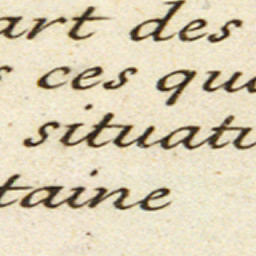 art des
s ces qua
situatu
taine